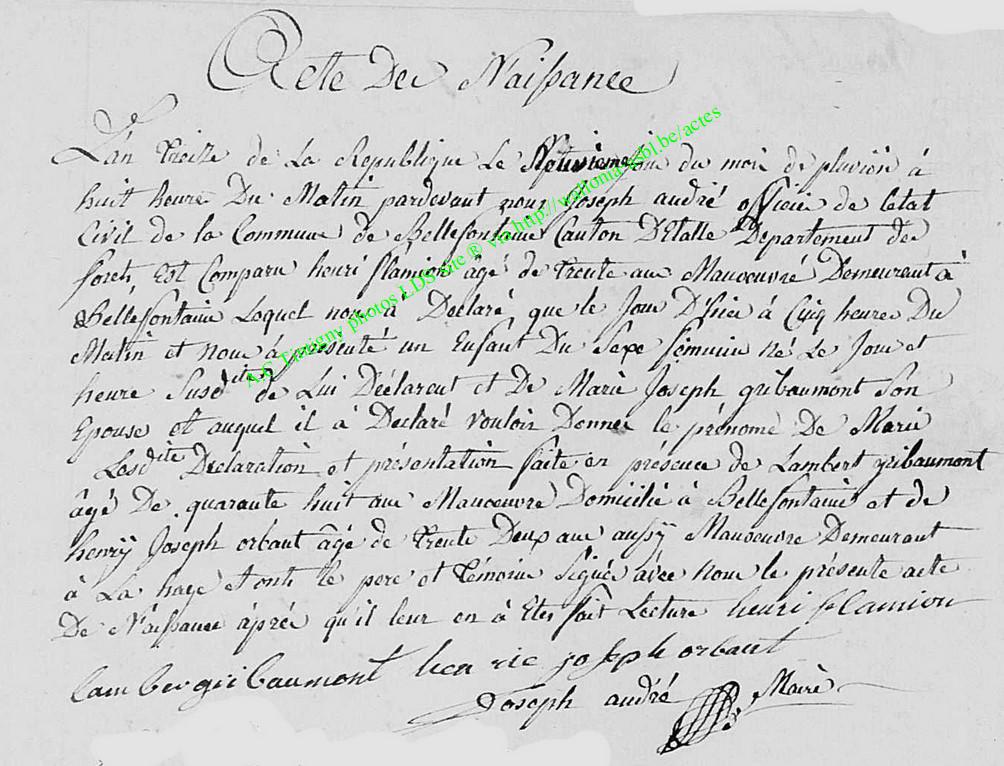 Acte De Naissance
L'an treize de La Republique Le Neuvieme jour du mois de pluviôs à
huit heure Du Matin pardevant nous Joseph andré officier de letat
Civil de la Commune de Bellefontaine Canton D'Etalle Departement des
forets, Est Comparu henri flamion âgé de trente ans Manoeuvre Demeurant à
Bellefontaine Lequel nous à Declaré que le Jour D'hier à Cinq heures Du
Matin et nous à présenté un Enfant Du Sexe féminin né Le Jour et
heure Susdite de Lui Déclarent et De Marie Joseph gribaumont Son
Epouse et auquel il à Declaré vouloir Donner le prénoms De Marie
Lesdite Declaration et présentation faite en présence de Lambert gribaumont
âgé De quarante huit ans Manoeuvre Domicilié à Bellefontaine et de
henry Joseph orbant âgé de trente Deux ans aussy Manoeuvre Demeurant
à La haye et onts le pere et témoins Signés avec nous le présente acte
De Naissance âprés qu'il leur en à Etes fait Lecture henri flamion
lamber gribaumont henric joseph orbant
Joseph andré Maire
A.C Tintigny photos LDS site ® via http://wallonia.asbl.be/actes